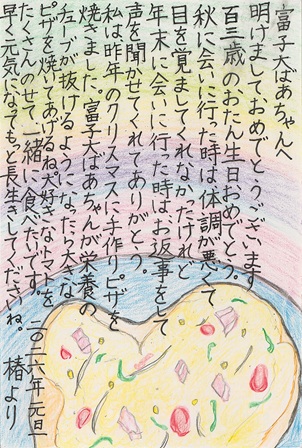 富子大ばあちゃんへ
明けましておめでとうございます。
百三歳のおたん生日おめでとう。
秋に会いに行った時は体調が悪くて
目を覚ましてくれなかったけれど
年末に会いに行った時はお返事をして
声を聞かせてくれてありがとう。
私は昨年のクリスマスに手作りピザを
焼きました。富子大ばあちゃんが栄養の
チューブが抜けるようになったら大きな
ピザを焼いてあげるね。大好きなトマトを
たくさんのせて一緒に食べたいです。
早く元気になってもっと長生きしてくださいね。
二〇二六年元旦
椿より